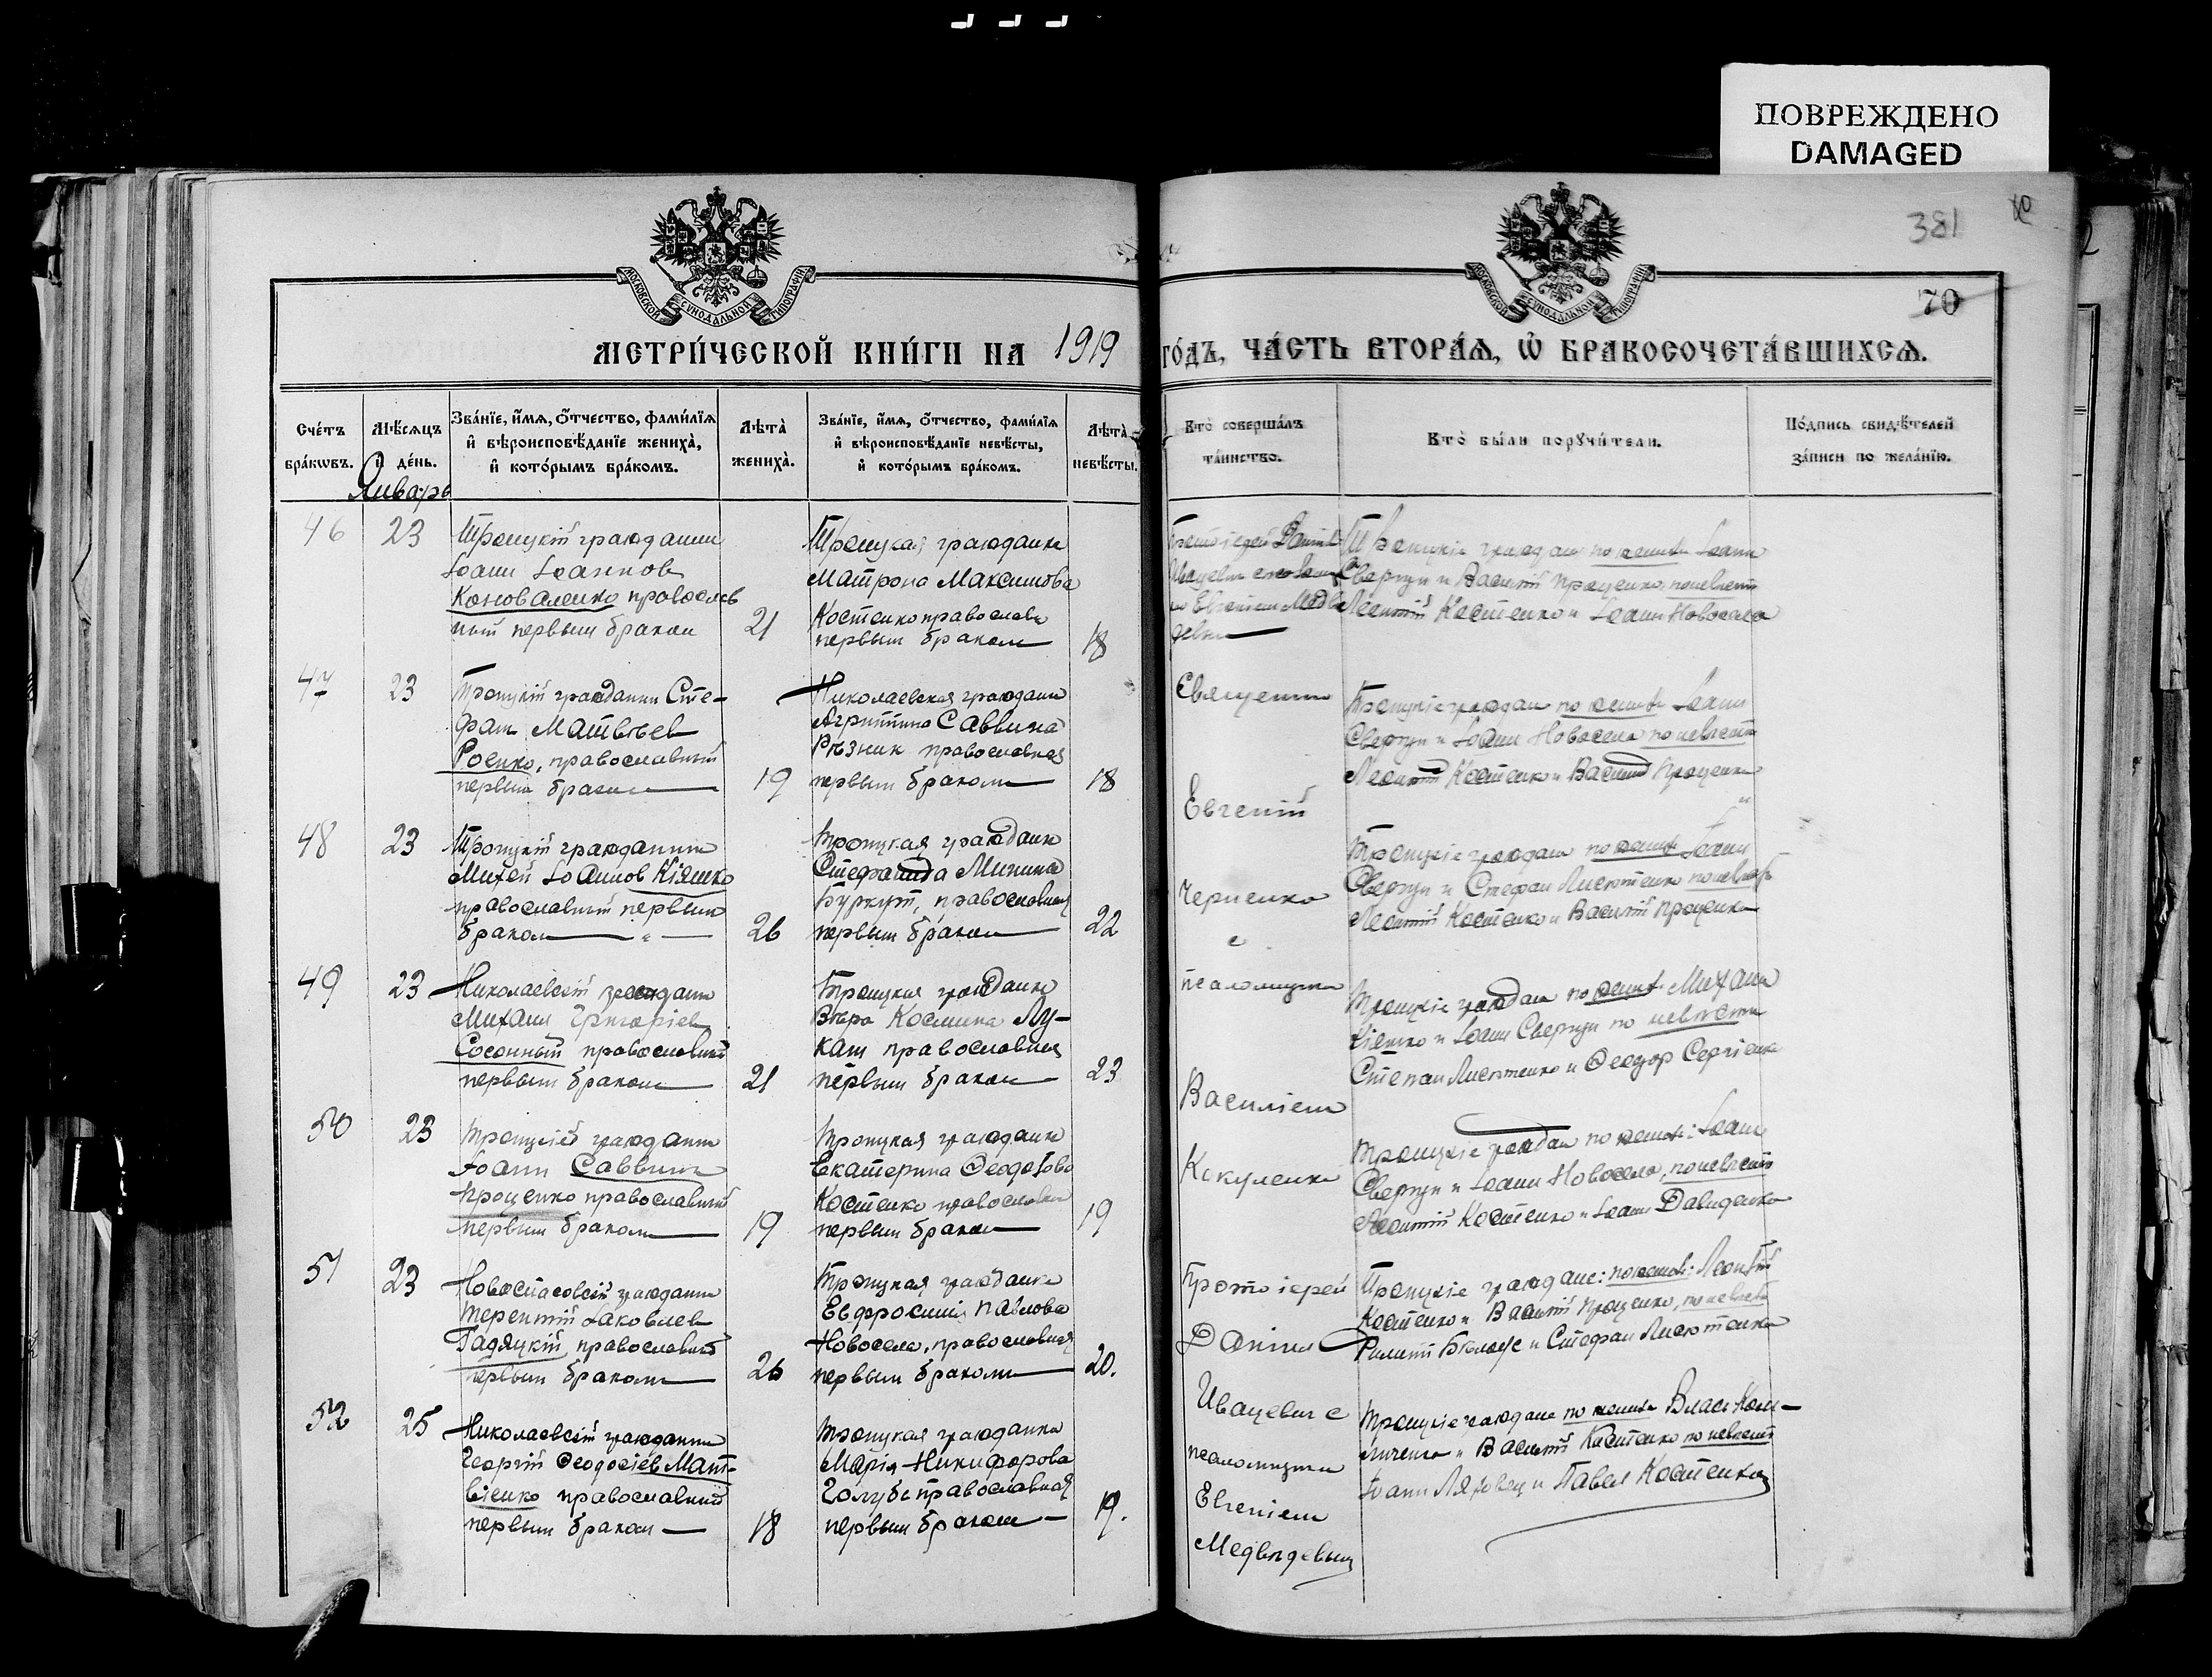 ПОВРЕЖДЕНО
DAMAGED
381
70
МОСКОВСКОЙ СѴНОДАЛЬНОЙ ТИПОГРАФІИ
МОСКОВСКОЙ СѴНОДАЛЬНОЙ ТИПОГРАФІИ
МЕТРИ́ЧЕСКОЙ КНИ́ГИ НА 1919
ГО́ДЪ, ЧА́СТЬ ВТОРА́Я, Ѡ҆ БРАКОСОЧЕТА́ВШИХСЯ.
Сче́тъ
бра́кѡвъ.
Мѣ́сяцъ
и҆ де́нь.
Январь
Зва́нїе, и҆́мя, ѻ҆́тчество, фами́лїя
и҆ вѣроисповѣ́данїе жениха̀,
и҆ кото́рымъ бра́комъ.
Лѣта̀
жениха̀.
Зва́нїе, и҆́мя, ѻ҆́тчество, фами́лїя
и҆ вѣроисповѣ́данїе невѣ́сты,
и҆ кото́рымъ бра́комъ.
Лѣта̀
невѣ́сты.
Кто̀ соверша́лъ
та́инство.
Кто̀ бы́ли порꙋчи́тели.
По́дпись свидѣ́телей
за́писи по жела́нїю.
46
23
Троицкій гражданин
Іоанн Іоаннов
Коноваленко православ
ный первым браком
21
Троицкая гражданка
Матрона Максимова
Костенко православн
первым браком
18
Протоіерей Даніил
Ивацевич
Евгеніем Медве
девым
Троицкіе граждане по жениху Іоанн
Свергун и Василій Проценко, по невесте
Леонтій Костенко и Іоанн Новосела
47
23
Троицкій гражданин Сте-
фан Матвѣев
Роенко, православный
первым браком
19
Николаевская граждан
Агриппина Саввина
Рѣзник православная
первым браком
18
Священник
Троицкіе граждан по жениху Іоанн
Свергун и Іоанн Новосела по невесте
Леонтій Костенко и Василій Проценко
Евгеній
48
23
Троицкій гражданин
Михей Іоаннов Кіяшко
православный первым
браком
26
Троицкая гражданка
Стефанида Минина
Буркут, православная
первым браком
22
Черненко
с
Троицкіе граждан по жениху Іоанн
Свергун и Стефан Лисютенко по невесте
Леонтій Костенко и Василій Проценко
49
23
Николаевскій гражданин
Михаил Григоріев
Сосонный православный
первым браком
21
Троицкая гражданка
Вѣра Космина Лу-
каш православная
первым браком
23
псаломщиком
Василіем
Троицкіе граждан по жениху Михаил
Кіяшко и Іоанн Свергун по невѣсте
Степан Лисютенко и Ѳеодор Сергіенко
50
23
Троицкій гражданин
Іоанн Саввин
Проценко православный
первым браком
19
Троицкая гражданка
Екатерина Ѳеодотова
Костенко православная
первым браком
19
Какуленко
Троицкіе граждан по жениху: Іоанн
Свергун и Іоанн Новосела, по невесте
Леонтій Костенко и Іоанн Давиденко
51
23
Новоспасовскій гражданин
Терентій Іаковлев
Гадяцкій, православный
первым браком
26
Троицкая гражданка
Евфросинія Павлова
Новосела, православная
первым браком
20.
Протоіерей
Даніил
Троицкіе граждане: по жениху: Леонтій
Костенко и Василій Проценко, по невесте
и Стефан Лисютенко
52
25
Николаевскій гражданин
Георгій Ѳеодосіев Мат-
віенко православный
первым браком
18
Троицкая гражданка
Марія Никифорова
Голубь православная
первым браком
19.
Ивацевич с
псаломщиком
Евгеніем
Медвѣдевым
Троицкіе граждане по жениху Влас
и Василій Костенко по невесте
Іоанн Ляховец и Павел Костенко